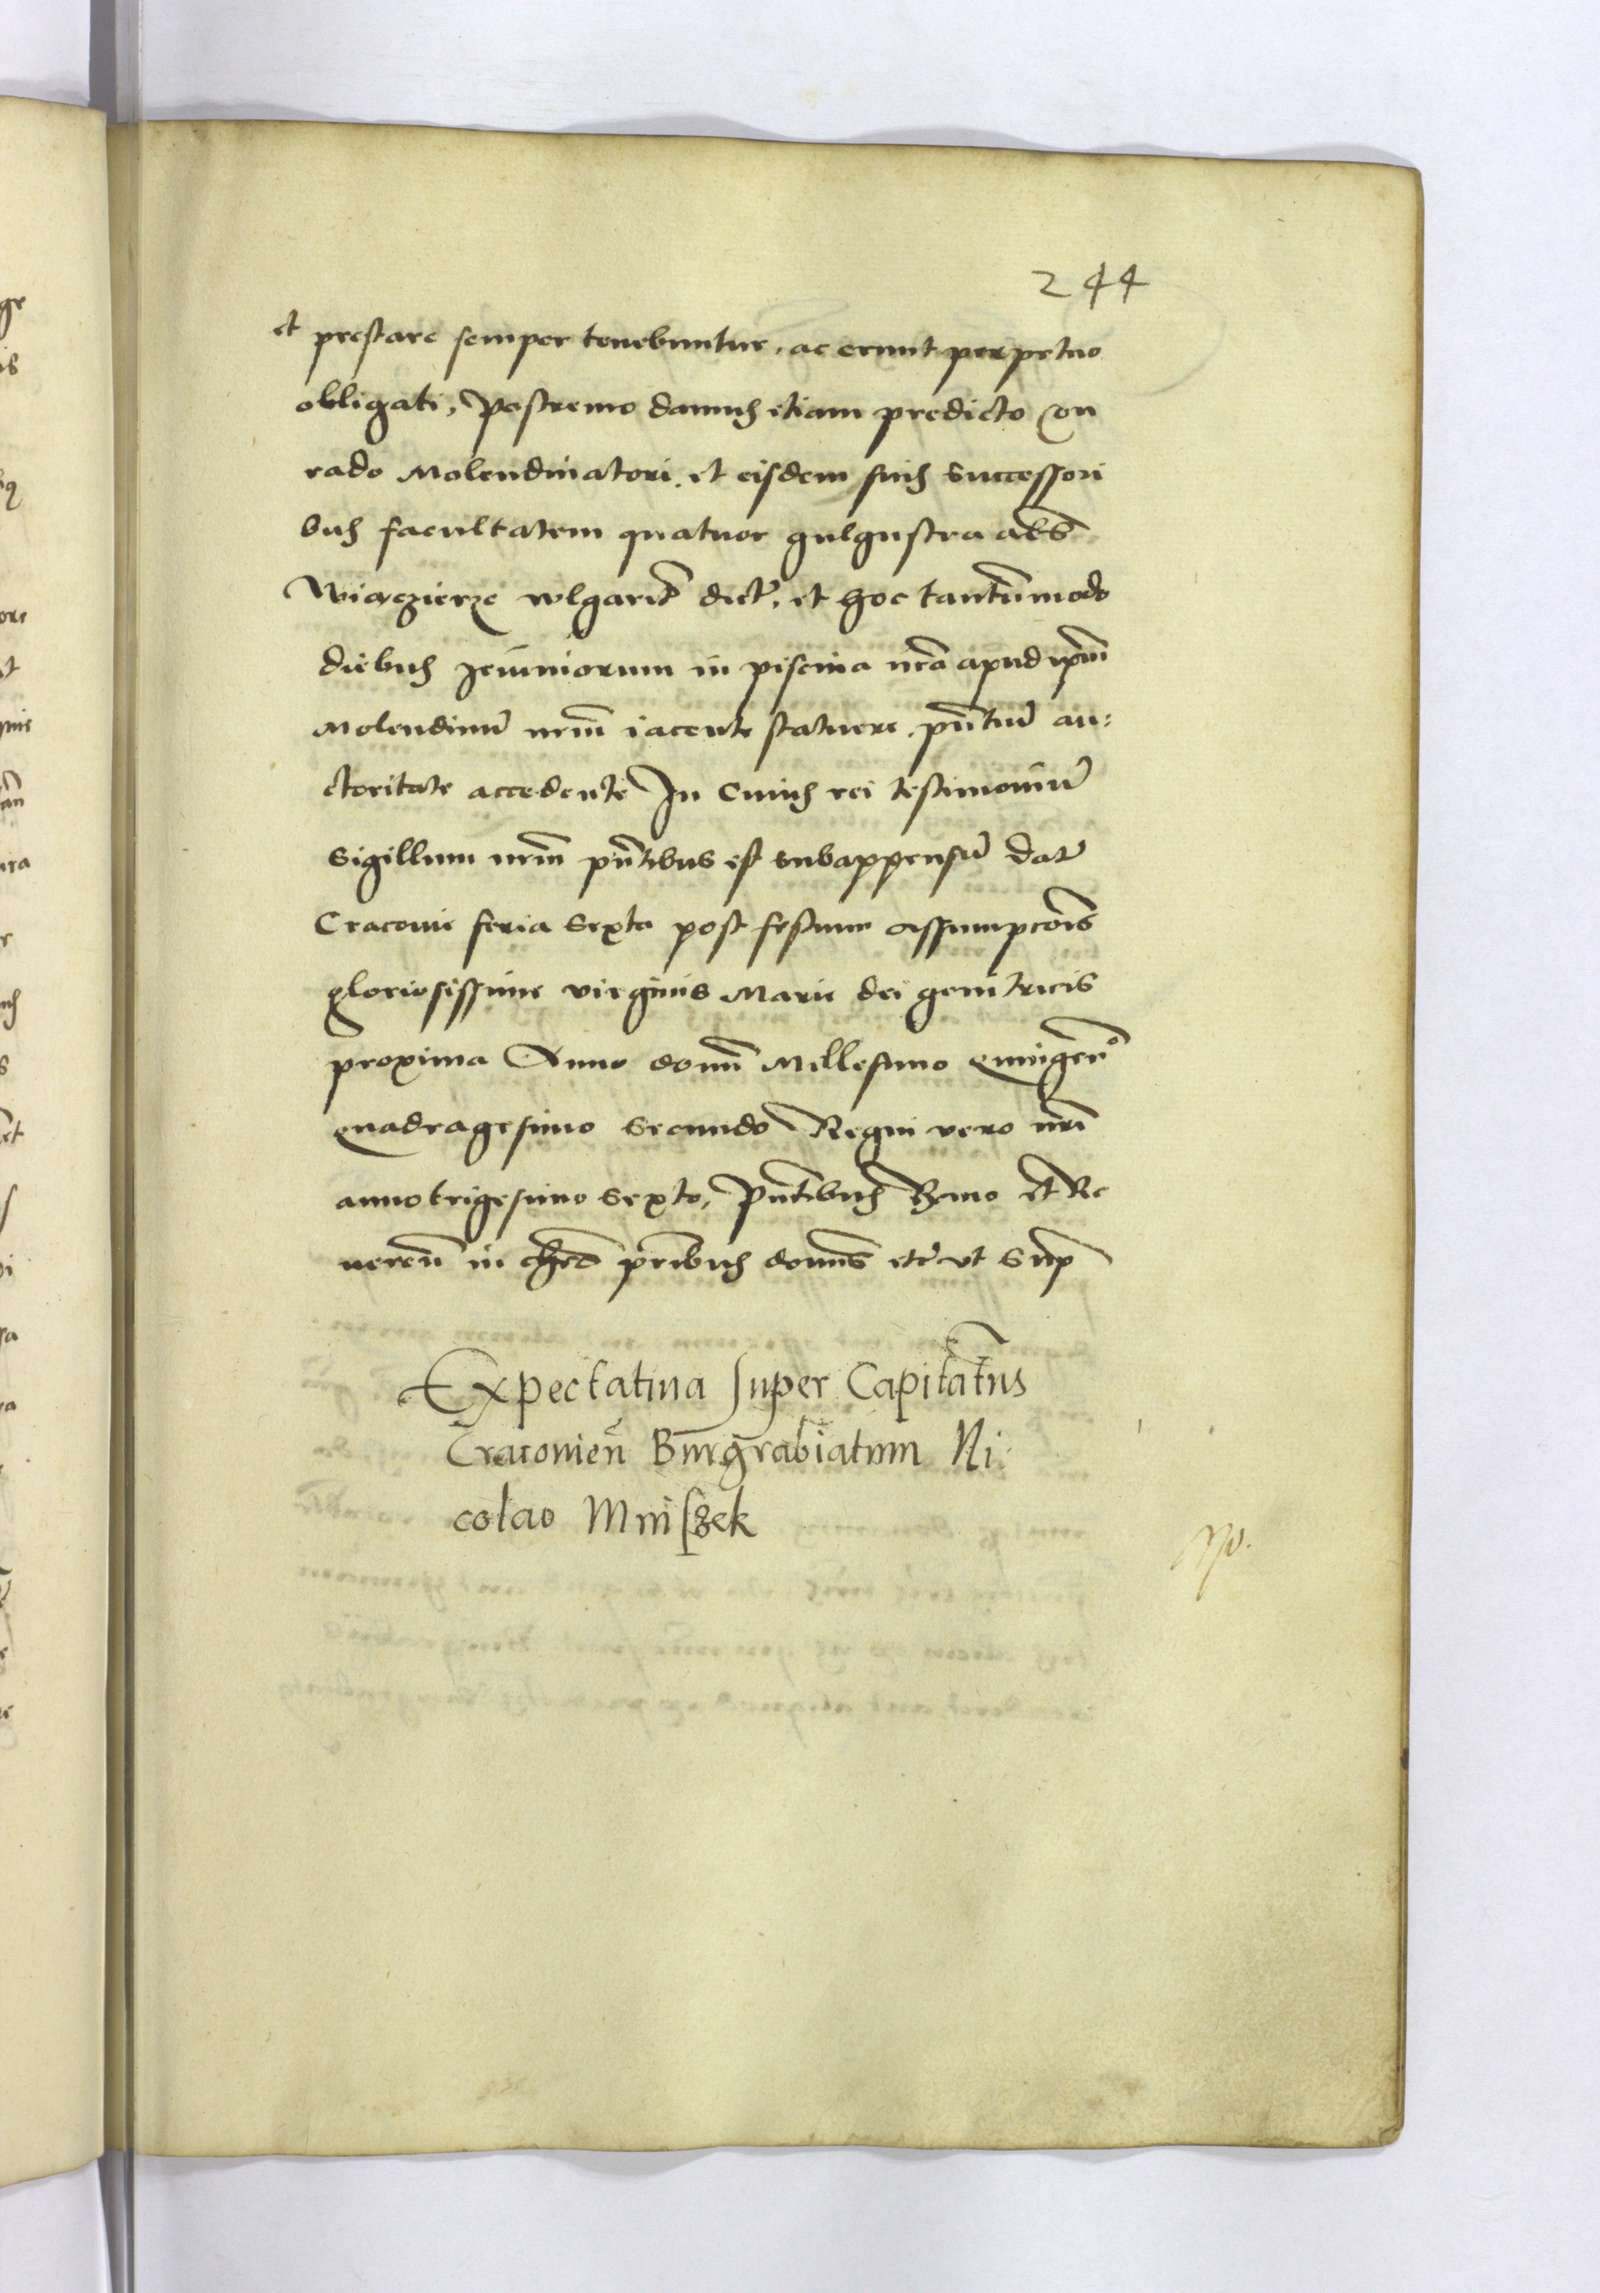 244
et prestare semper tenebuntur, ac erunt perpetuo
obligati, Postremo damus etiam predicto Con
rado Molendinatori, et eisdem suis successori
bus facultatem quatuor gulgustra als
Wiaczierze wlgarit dict, et hoc tantummodo
diebus Jeiuniorum in piscina nrã apud ipm̃
Molendinũ nrm̃ iacente statuere, pñtiũ au:
ctoritate accedente In Cuius rei testimoniũ
Sigillum nrm̃ pñtibus est subappensũ Dat
Cracovie feria Sexta post festum Assumpcõis
gloriosissime virginis Marie dei genitricis
proxima Anno domĩ Millesimo quingenº
quadragesimo Secundo Regni vero nrĩ
anno trigesimo Sexto, Pñtibus Rmo et Re
uereñ in chrõ pribus domis etc̃ vt Sup
Expectatiua super Capitatus
Cracouieñ Burgrabiatum Ni
colao Mniszek